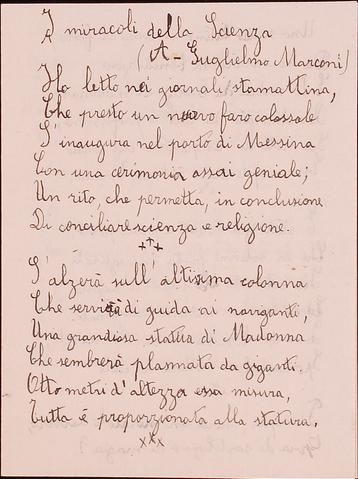 I miracoli della Scienza
(A - Guglielmo Marconi)
Ho letto nei giornali, stamattina,
Che presto un nuovo faro colossale
S'inaugura nel porto di Messina
Con una cerimonia assai geniale;
Un rito, che permetta, in conclusione
Di conciliare scienza e religione.
x+x
S'alzerà sull'altissima colonna
Che servirà di guida ai naviganti,
Una grandiosa statua di Madonna
Che sembrerà plasmata da giganti.
Otto metri d'altezza essa misura,
Tutta è proporzionata alla statura.
xxx